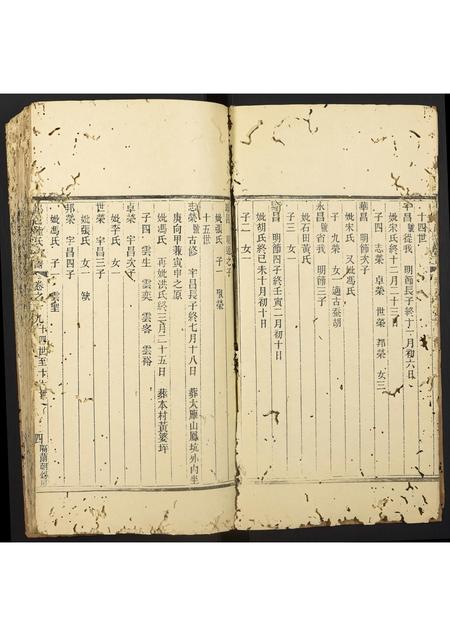 十四世
宇昌號從我 明節長子終十二月初六日
妣宋氏終十二月二十三日
子四 志榮 卓榮 世榮 邦榮 女三
華昌 明節次子
妣宋氏 又妣馮氏
子 九榮 女一適古蚕胡
永昌號省我 明節三子
妣石田黃氏
子三 女一
昌 明節四子終壬寅二月初十日
妣胡氏終己未十月初十日
子二 女一
妣張氏 子一 榮
十五世
志榮號古修 宇昌長子終七月十八日 葬大雁山鳳坑外內坐
庚向甲兼寅申之原
妣馮氏 再妣洪氏終三月二十五日 葬本村黃婆坪
子四 雲生 雲奕 雲客 雲裕
卓榮 宇昌次子
妣李氏 女一
世榮 宇昌三子
妣張氏 女一
邦榮 宇昌四子
妣馮氏 子一 雲星
氏 卷之九 十四世至十 四